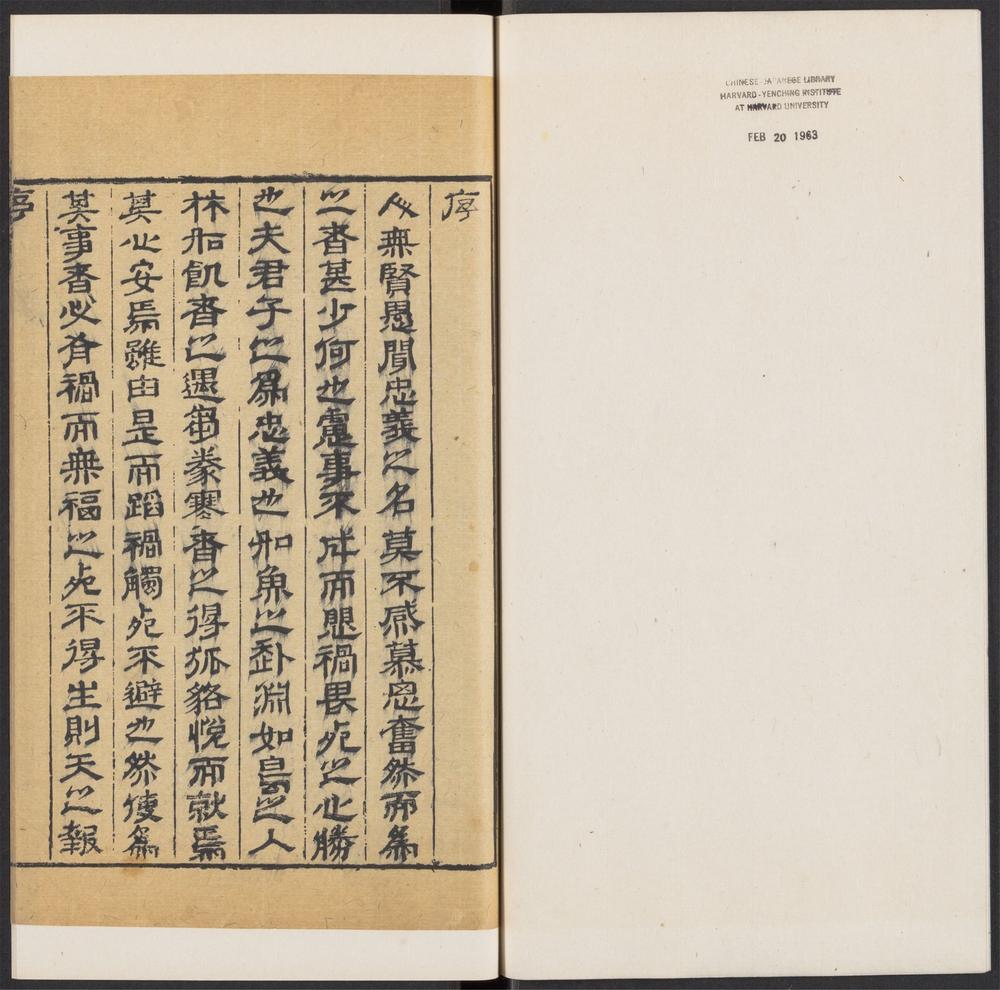 CHINESE-JAPANESE LIBRARY
HARVARD-YENCHING INSTITUTE
AT HARVARD UNIVERSITY
FEB 20 1963
序
人無賢愚聞忠義之名莫不感慕思奮然而為
之者甚少何也慮事不成而愳禍畏死之心勝
也夫君子之為忠義也如魚之赴淵如鳥之入
林如飢者之遇芻豢寒者之得狐貉悅而就焉
其心安焉雖由是而蹈禍觸死不避也然使為
其事者必有禍而無福之死不得生則天之報
序